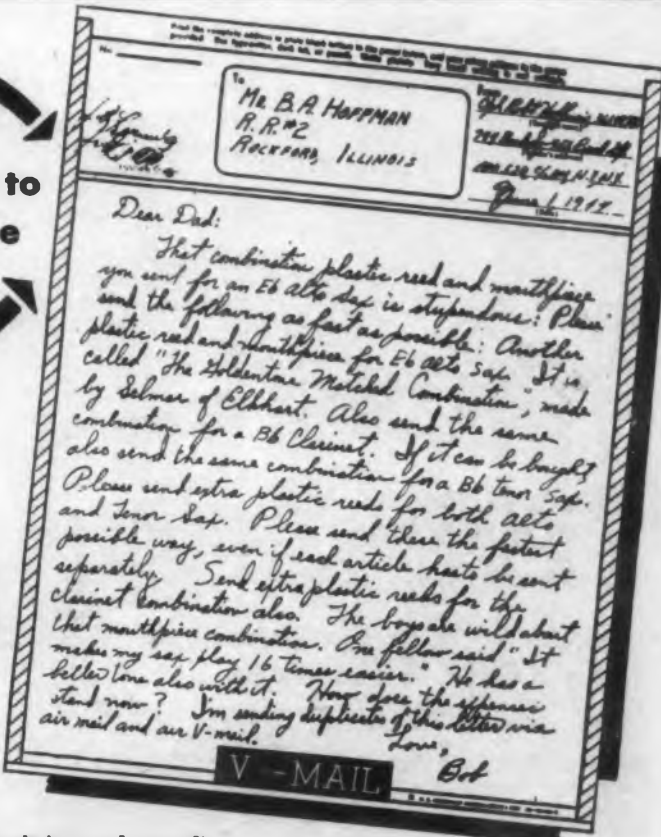 to
e
Print the complete address in plain block letters in the panel below, and your return address in the space
provided. Use typewriter, dark ink, or pencil.
No.
To
MR B. A. HOFFMAN
R. R. #2
ROCKFORD, ILLINOIS
From
June 1 1944
Dear Dad:
That combination plastic reed and mouthpiece
you sent for an Eb alto sax is stupendous! Please
send the following as fast as possible: Another
plastic reed and mouthpiece for Eb alto sax. It is
called "The Goldentone Matched Combination", made
by Selmer of Elkhart. Also send the same
combination for a Bb Clarinet. If it can be bought
also send the same combination for a Bb tenor sax.
Please send extra plastic reeds for both alto
and Tenor Sax. Please send these the fastest
possible way, even if each article has to be sent
separately. Send extra plastic reeds for the
clarinet combination also. The boys are wild about
that mouthpiece combination. One fellow said "It
makes my sax play 16 times easier." He has a
better tone also with it. How does the expenses
stand now? I'm sending duplicates of this letter via
air mail and air V-mail.
Love,
Bob
V - MAIL